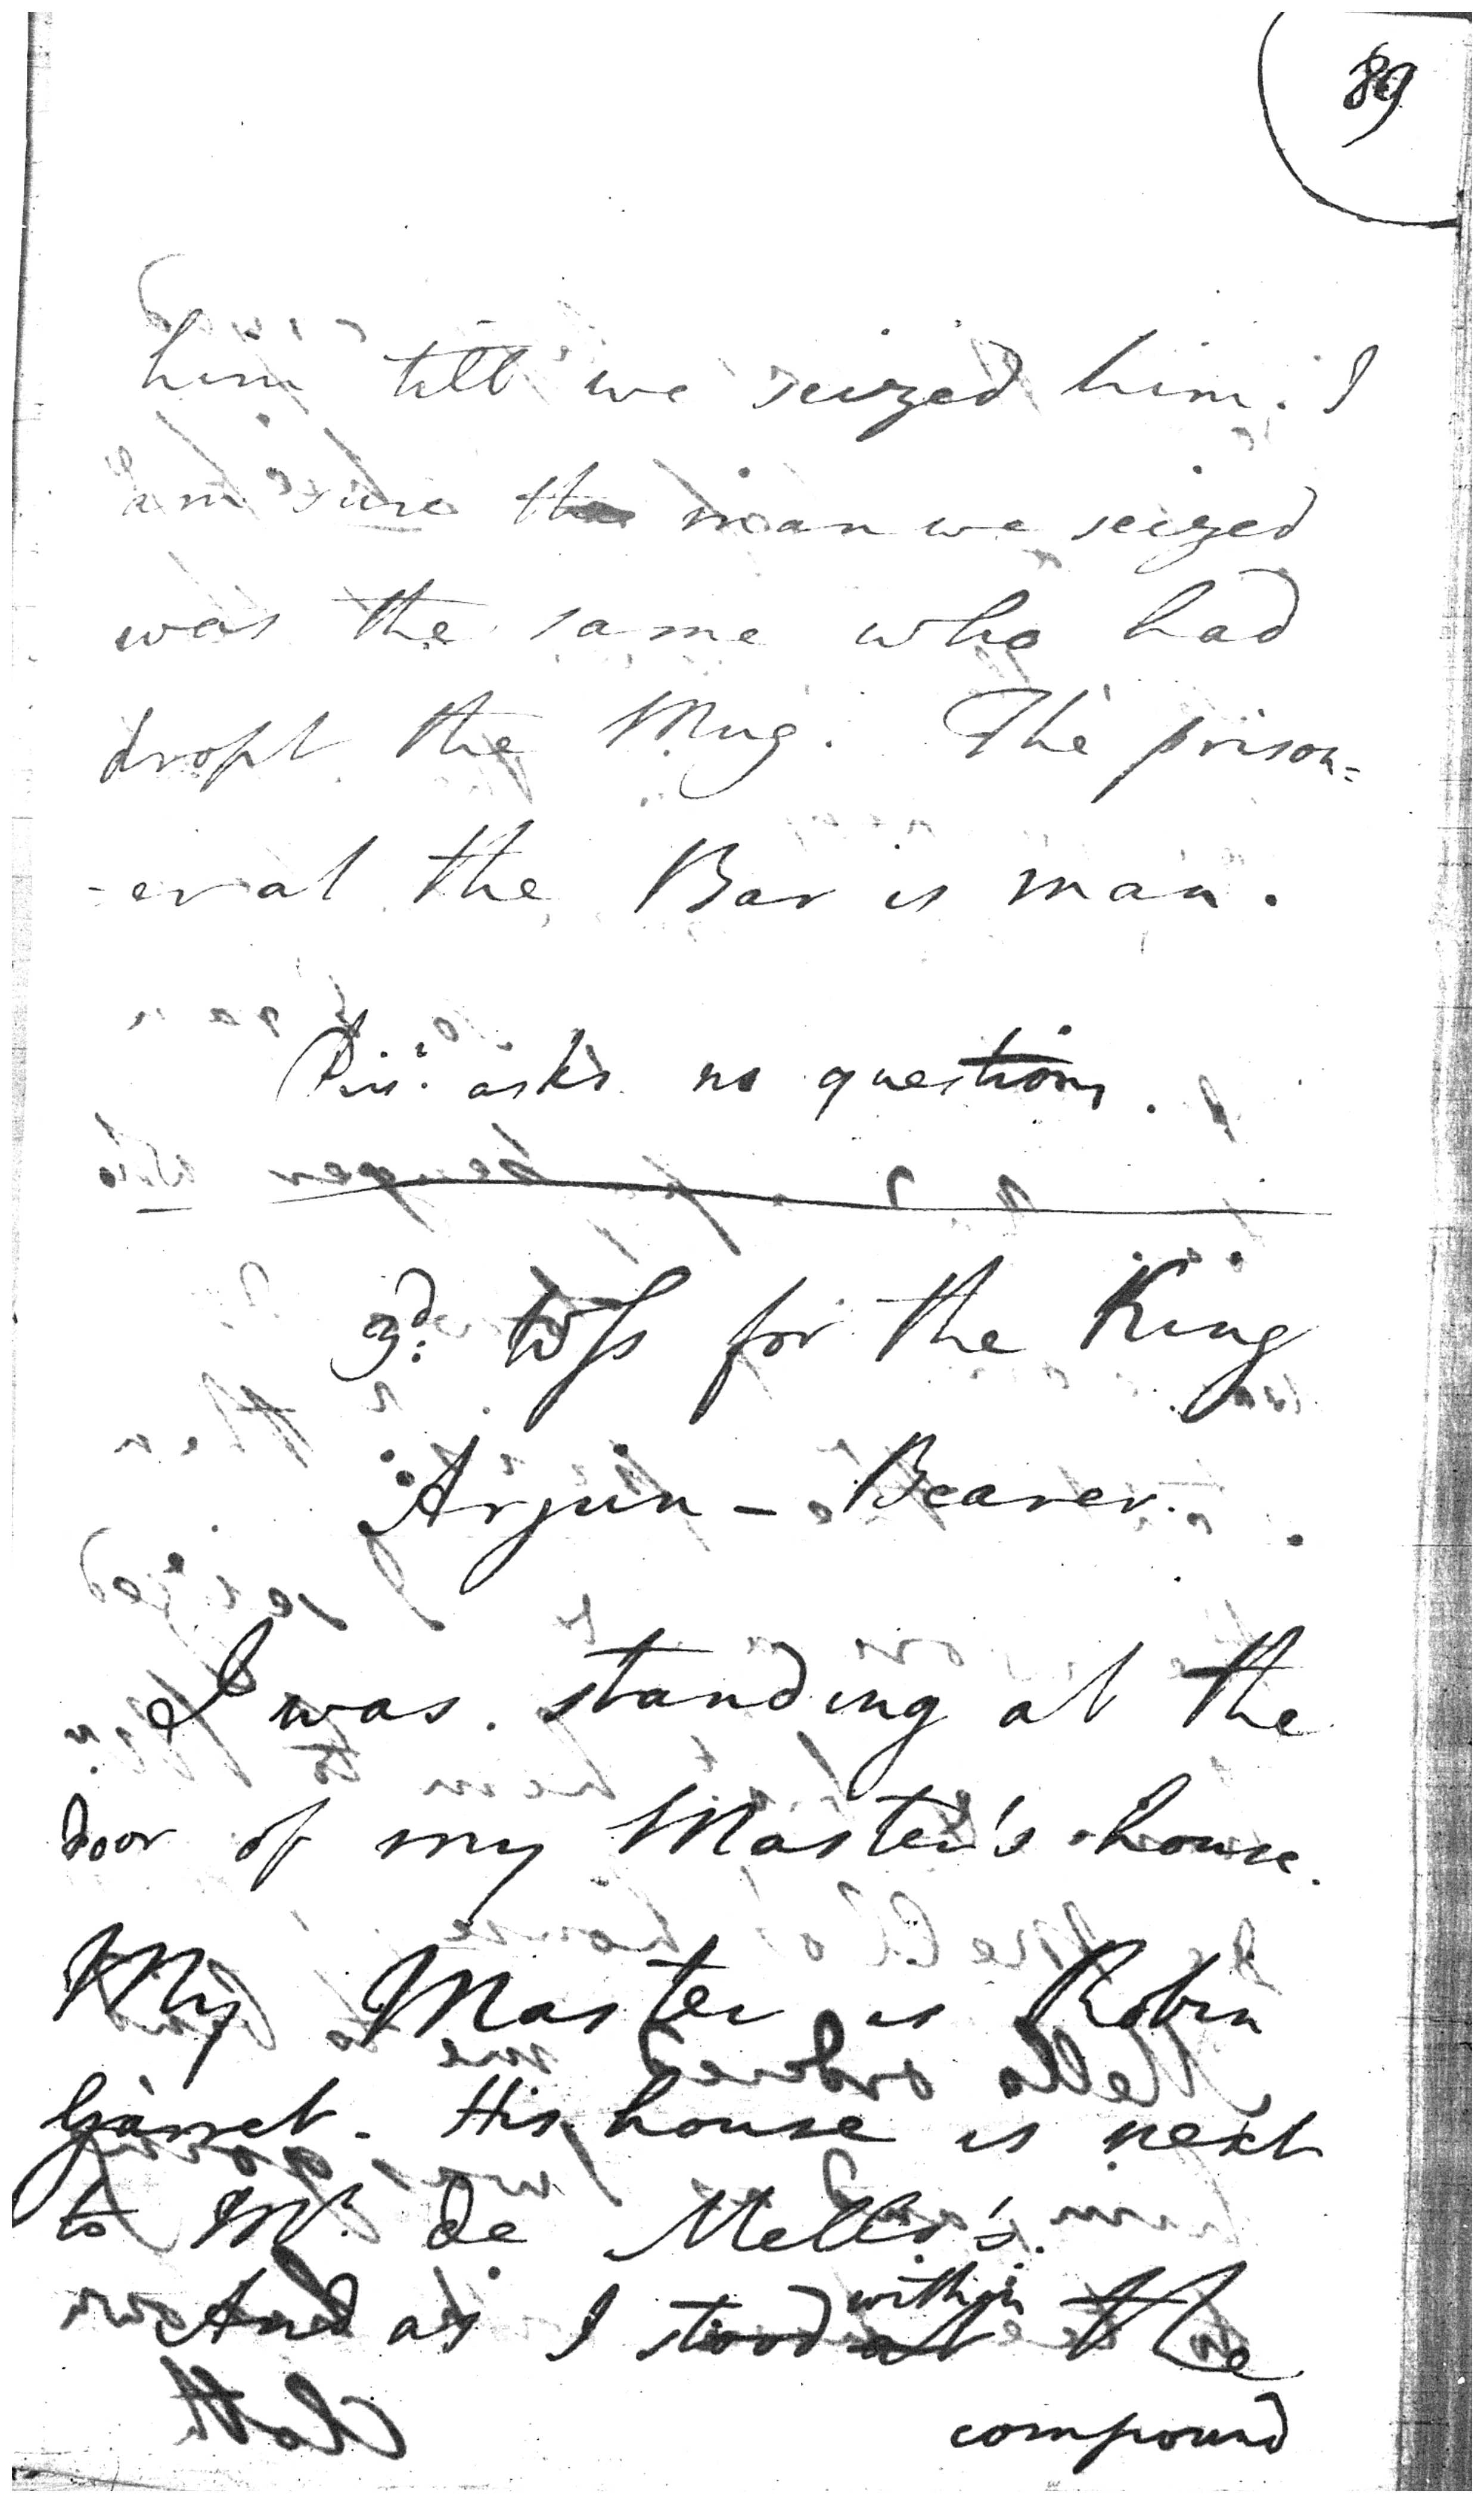 89
him till we seized him. I
am sure the man we seized
was the same who had
dropt the Mug. The prison=
-er at the Bar is man.
Pris.r asks no questions.
3d. Wss for the King
Arjun - Bearer.
I was standing at the
door of my Master's house.
My Master is Robin
Garret. His house is next
to Mr. de Mello's.
And as I stood within the
compound